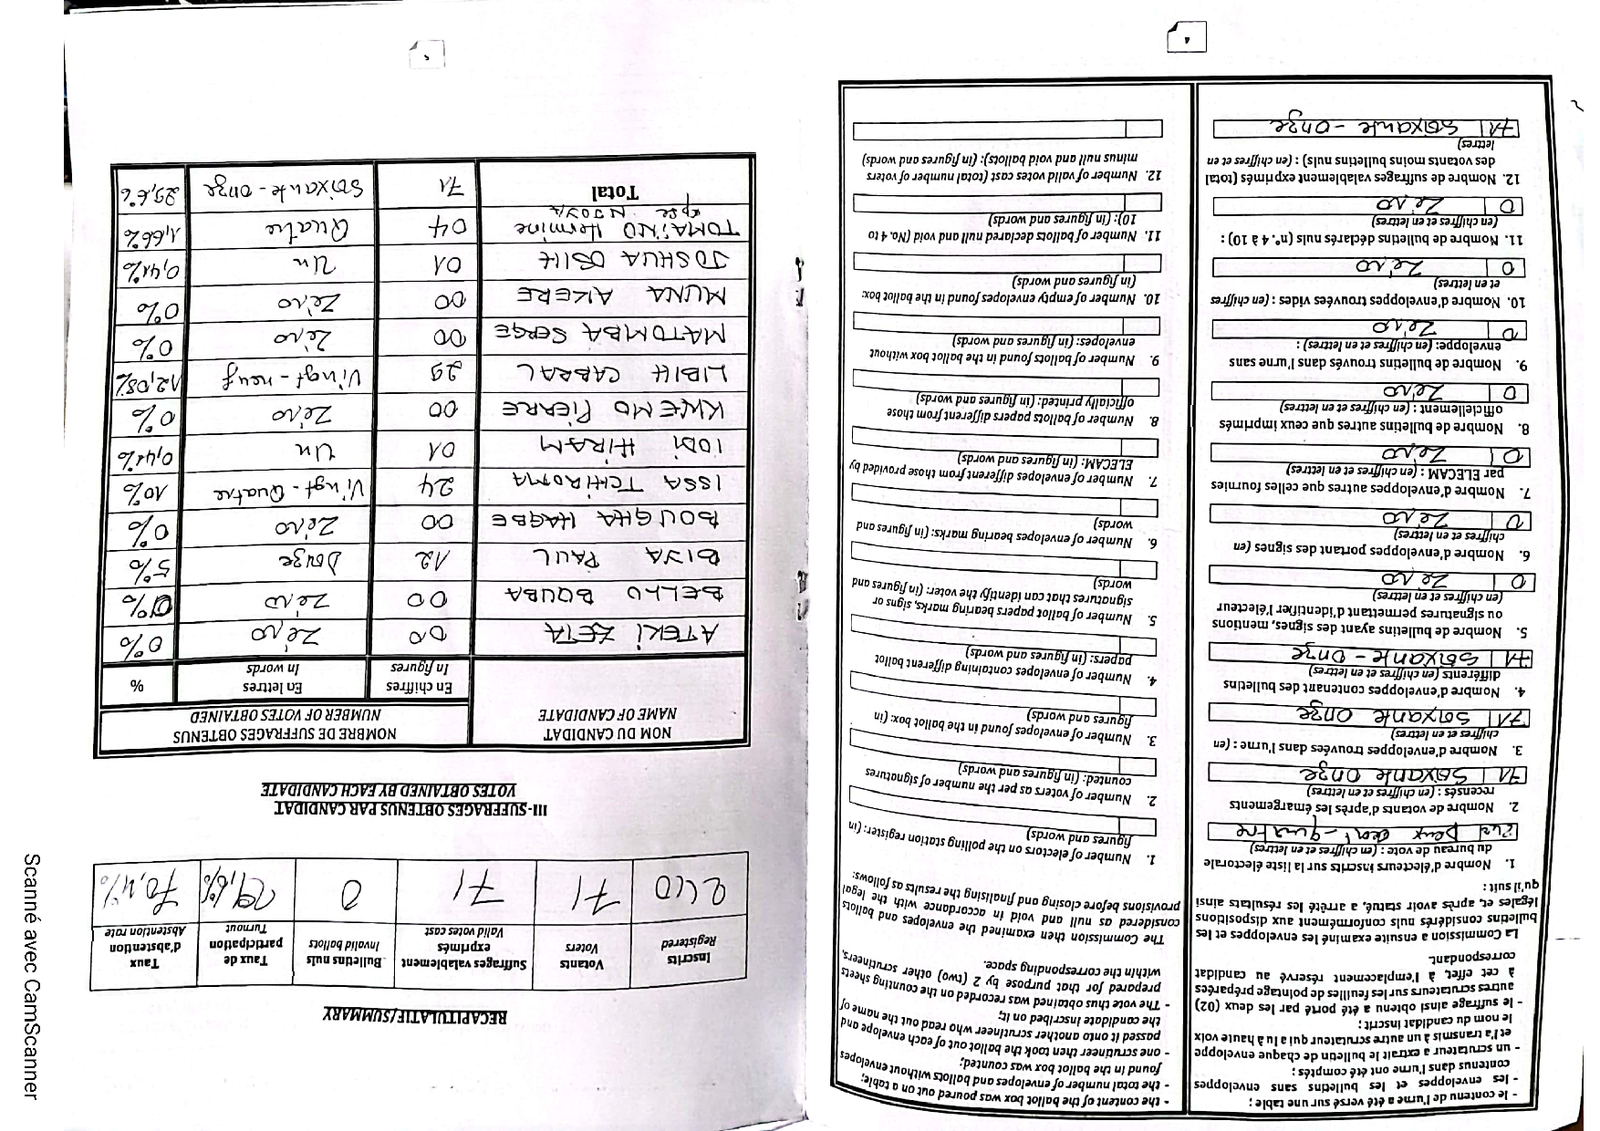 - le contenu de l'urne a été versé sur une table ;
- les enveloppes et les bulletins sans enveloppes
contenus dans l'urne ont été comptés ;
- un scrutateur a extrait le bulletin de chaque enveloppe
et l'a transmis à un autre scrutateur qui a lu à haute voix
le nom du candidat inscrit ;
- le suffrage ainsi obtenu a été porté par les deux (02)
autres scrutateurs sur les feuilles de pointage préparées
à cet effet, à l'emplacement réservé au candidat
correspondant.
La Commission a ensuite examiné les enveloppes et les
bulletins considérés nuls conformément aux dispositions
légales et, après avoir statué, a arrêté les résultats ainsi
qu'il suit :
1. Nombre d'électeurs inscrits sur la liste électorale
du bureau de vote : (en chiffres et en lettres)
Deux cent - quatre
2. Nombre de votants d'après les émargements
recensés : (en chiffres et en lettres)
71 Soixante onze
3. Nombre d'enveloppes trouvées dans l'urne : (en
chiffres et en lettres)
71 Soixante onze
4. Nombre d'enveloppes contenant des bulletins
différents (en chiffres et en lettres)
71 Soixante - onze
5. Nombre de bulletins ayant des signes, mentions
ou signatures permettant d'identifier l'électeur
(en chiffres et en lettres)
0 Zéro
6. Nombre d'enveloppes portant des signes (en
chiffres et en lettres)
0 Zéro
7. Nombre d'enveloppes autres que celles fournies
par ELECAM : (en chiffres et en lettres)
0 Zéro
8. Nombre de bulletins autres que ceux imprimés
officiellement : (en chiffres et en lettres)
0 Zéro
9. Nombre de bulletins trouvés dans l'urne sans
enveloppe: (en chiffres et en lettres) :
0 Zéro
10. Nombre d'enveloppes trouvées vides : (en chiffres
et en lettres)
0 Zéro
11. Nombre de bulletins déclarés nuls (n°. 4 à 10) :
(en chiffres et en lettres)
0 Zéro
12. Nombre de suffrages valablement exprimés (total
des votants moins bulletins nuls) : (en chiffres et en
lettres)
71 Soixante - onze
- the content of the ballot box was poured out on a table;
- the total number of envelopes and ballots without envelopes
found in the ballot box was counted;
- one scrutineer then took the ballot out of each envelope and
passed it onto another scrutineer who read out the name of
the candidate inscribed on it;
- The vote thus obtained was recorded on the counting sheets
prepared for that purpose by 2 (two) other scrutineers,
within the corresponding space.
The Commission then examined the envelopes and ballots
considered as null and void in accordance with the legal
provisions before closing and finalising the results as follows:
1. Number of electors on the polling station register: (in
figures and words)
2. Number of voters as per the number of signatures
counted: (in figures and words)
3. Number of envelopes found in the ballot box: (in
figures and words)
4. Number of envelopes containing different ballot
papers: (in figures and words)
5. Number of ballot papers bearing marks, signs or
signatures that can identify the voter: (in figures and
words)
6. Number of envelopes bearing marks: (in figures and
words)
7. Number of envelopes different from those provided by
ELECAM: (in figures and words)
8. Number of ballots papers different from those
officially printed: (in figures and words)
9. Number of ballots found in the ballot box without
envelopes: (in figures and words)
10. Number of empty envelopes found in the ballot box:
(in figures and words)
11. Number of ballots declared null and void (No. 4 to
10): (in figures and words)
12. Number of valid votes cast (total number of voters
minus null and void ballots): (in figures and words)
4
RECAPITULATIF/SUMMARY
Inscrits Registered | Votants Voters | Suffrages valablement exprimés Valid votes cast | Bulletins nuls Invalid ballots | Taux de participation Turnout | Taux d'abstention Abstention rate
240 | 71 | 71 | 0 | 29,6% | 70,4%
III-SUFFRAGES OBTENUS PAR CANDIDAT
VOTES OBTAINED BY EACH CANDIDATE
NOM DU CANDIDAT NAME OF CANDIDATE | NOMBRE DE SUFFRAGES OBTENUS NUMBER OF VOTES OBTAINED
En chiffres In figures | En lettres In words | %
ATEKI ZETA 00 Zéro 0%
BELLO BOUBA 00 Zéro 0%
BIYA PAUL 12 Douze 5%
BOUGHA HAGBE 00 Zéro 0%
ISSA TCHIROMA 24 Vingt-Quatre 10%
IODI HIRAM 01 Un 0,41%
KWEMO PIERRE 00 Zéro 0%
LIBIH CABRAL 29 Vingt-neuf 12,08%
MATOMBA SERGE 00 Zéro 0%
MUNA AKERE 00 Zéro 0%
JOSHUA OSIH 01 Un 0,41%
TOMAINO Hermine epse NJOYA 04 Quatre 1,66%
Total 71 Soixante-onze 29,6%
Scanné avec CamScanner